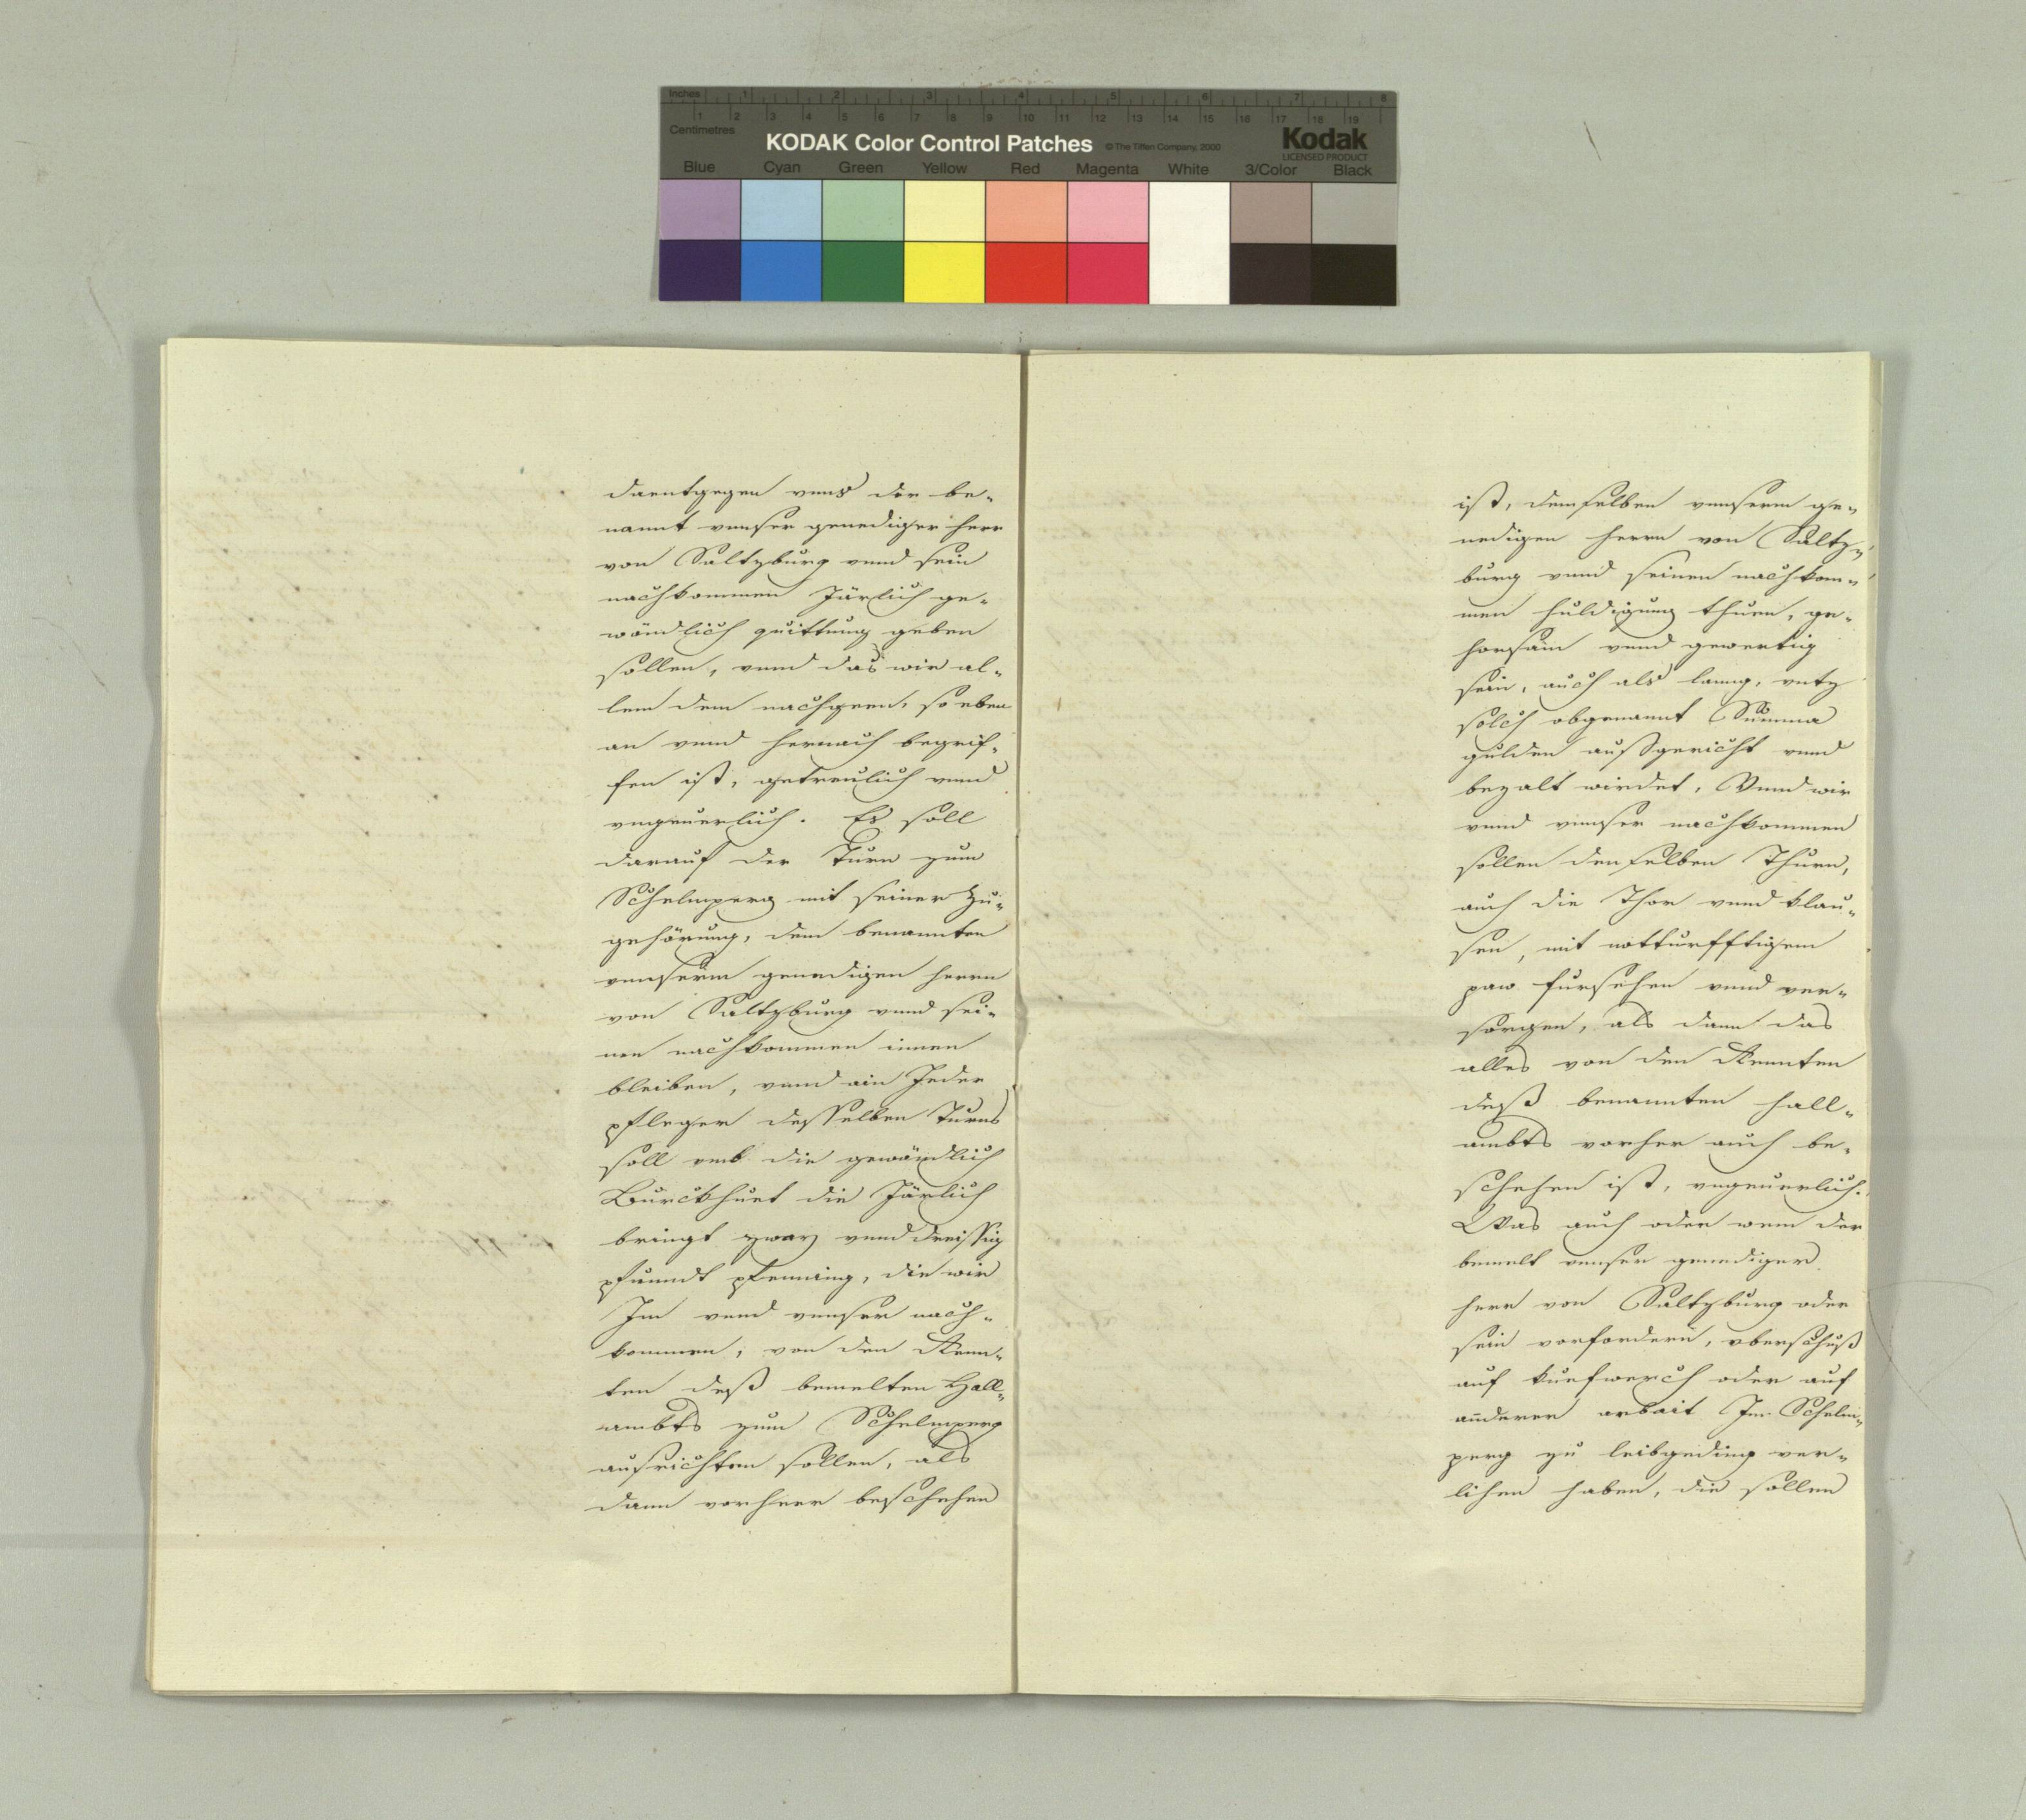 Inches 1 2 3 4 5 6 7 8
1 2 3 4 5 6 7 8 9 10 11 12 13 14 15 16 17 18 19
Centimetres
KODAK Color Control Patches © The Tiffen Company, 2000 Kodak
LICENSED PRODUCT
Blue Cyan Green Yellow Red Magenta White 3/Color Black
daentgegen vnns der be-
nannt vnnser genediger herr
von Saltzburg vnnd sein
nachkommen Järlich ge-
wöndlich quittung geben
sollen, vnnd das wir al-
lem dem nachgeen, so eben
an vnnd hernach begrif-
fen ist, getreulich vnnd
vngeuerlich. Es soll
darauf der Turn zum
Schelmperg mit seiner Zu-
gehörung, dem benannten
vnnserm genedigen herrn
von Saltzburg vnnd sei-
nen nachkommen innen
bleiben, vnnd ain Jeder
pfleger desselben Turns
soll vmb die gewöndlich
Burckhuet die Järlich
bringt zway vnnd dreissig
pfunndt pfenning, die wir
Im vnnd vnnser nach-
kommen, von den Renn-
ten deß bemelten Hall-
ambts zum Schelmperg
ausrichten sollen, als
dann vorherr beschehen
ist, demselben vnnserm ge-
nedigen herrn von Saltz-
burg vnnd seinen nachkom-
men huldigung thuen, ge-
horsam vnnd gewertig
sein, auch als lanng, vntz
solch obgenannt Summa
gulden außgericht vnnd
bezalt wirdet, Vnnd wir
vnnd vnnser nachkommen
sollen denselben Thurn,
auch die Thor vnnd klau-
sen, mit notturfftigem
paw fursehen vnnd ver-
sorgen, als dann das
alles von den Rennten
deß benannten hall-
ambts vorher auch be-
schehen ist, vngeuerlich.
Was auch oder wem der
bemelt vnnser genediger
herr von Saltzburg oder
sein vorfordern, vberschuß
auf kuefwerch oder auf
annderer arbait Im Schelm-
perg zu leibgeding ver-
lihen haben, die sollen